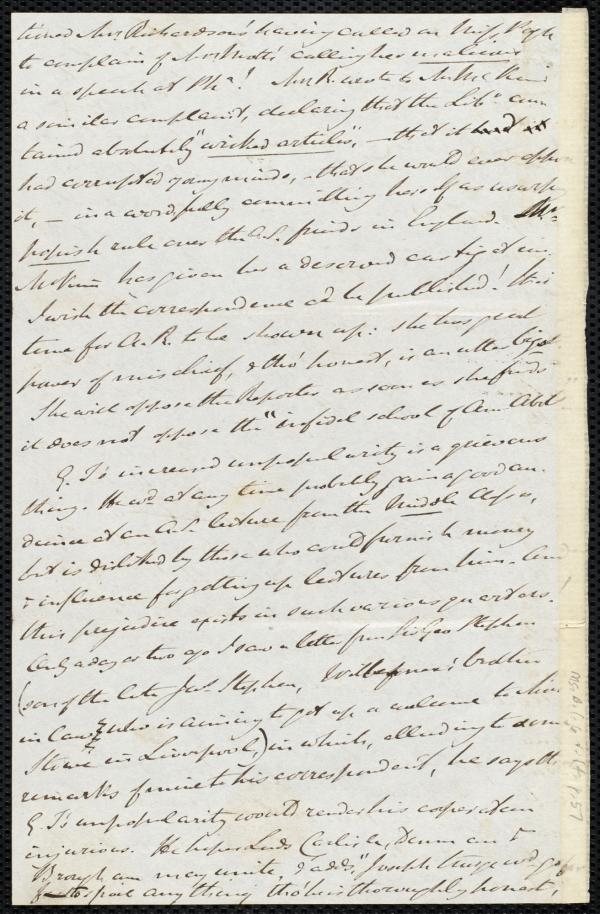 tioned Mrs Richardson's having called on Miss Pugh
to complain of Mrs Mott's calling her malicious
in a speech at Pha! Mrs R. wrote to McKim
a similar complaint, declaring that the Libr con-
tained absolutely "wicked articles", – that it
had corrupted young minds, – that she would ever oppose
it, – in a word, fully committing herself as usurping
popish rule over the A.S. friends in England. Mr
McKim has given her a deserved castigation.
I wish the correspondence cd be published! It is
time for A.R. to be shown up: she has great
power of mischief, & tho' honest, is an utter bigot.
She will oppose the Reporter as soon as she finds
it does not oppose the "infidel school of Am. Abol
G. T's increased unpopularity is a grievous
thing. He wd at any time probably gain a good au-
dience at an A.S. lecture from the Middle Classes,
but is disliked by those who could furnish money
& influence for getting up lectures from him. And
this prejudice exists in such various quarters.
Only a day or two ago I saw a letter from Sir Geo Stephen
(son of the late Jas Stephen, Wilberforce's brother
in law, & who is aiming to get up a welcome to Mrs
Stowe in Liverpool,) in which, alluding to some
remarks of mine to his correspondent, he says tht
G. T's unpopularity would render his cooperation
injurious. He hopes Lords Carlisle, Denman &
Brougham may unite, & adds "Joseph Sturge wd go far
to spoil anything tho' he is thoroughly honest,